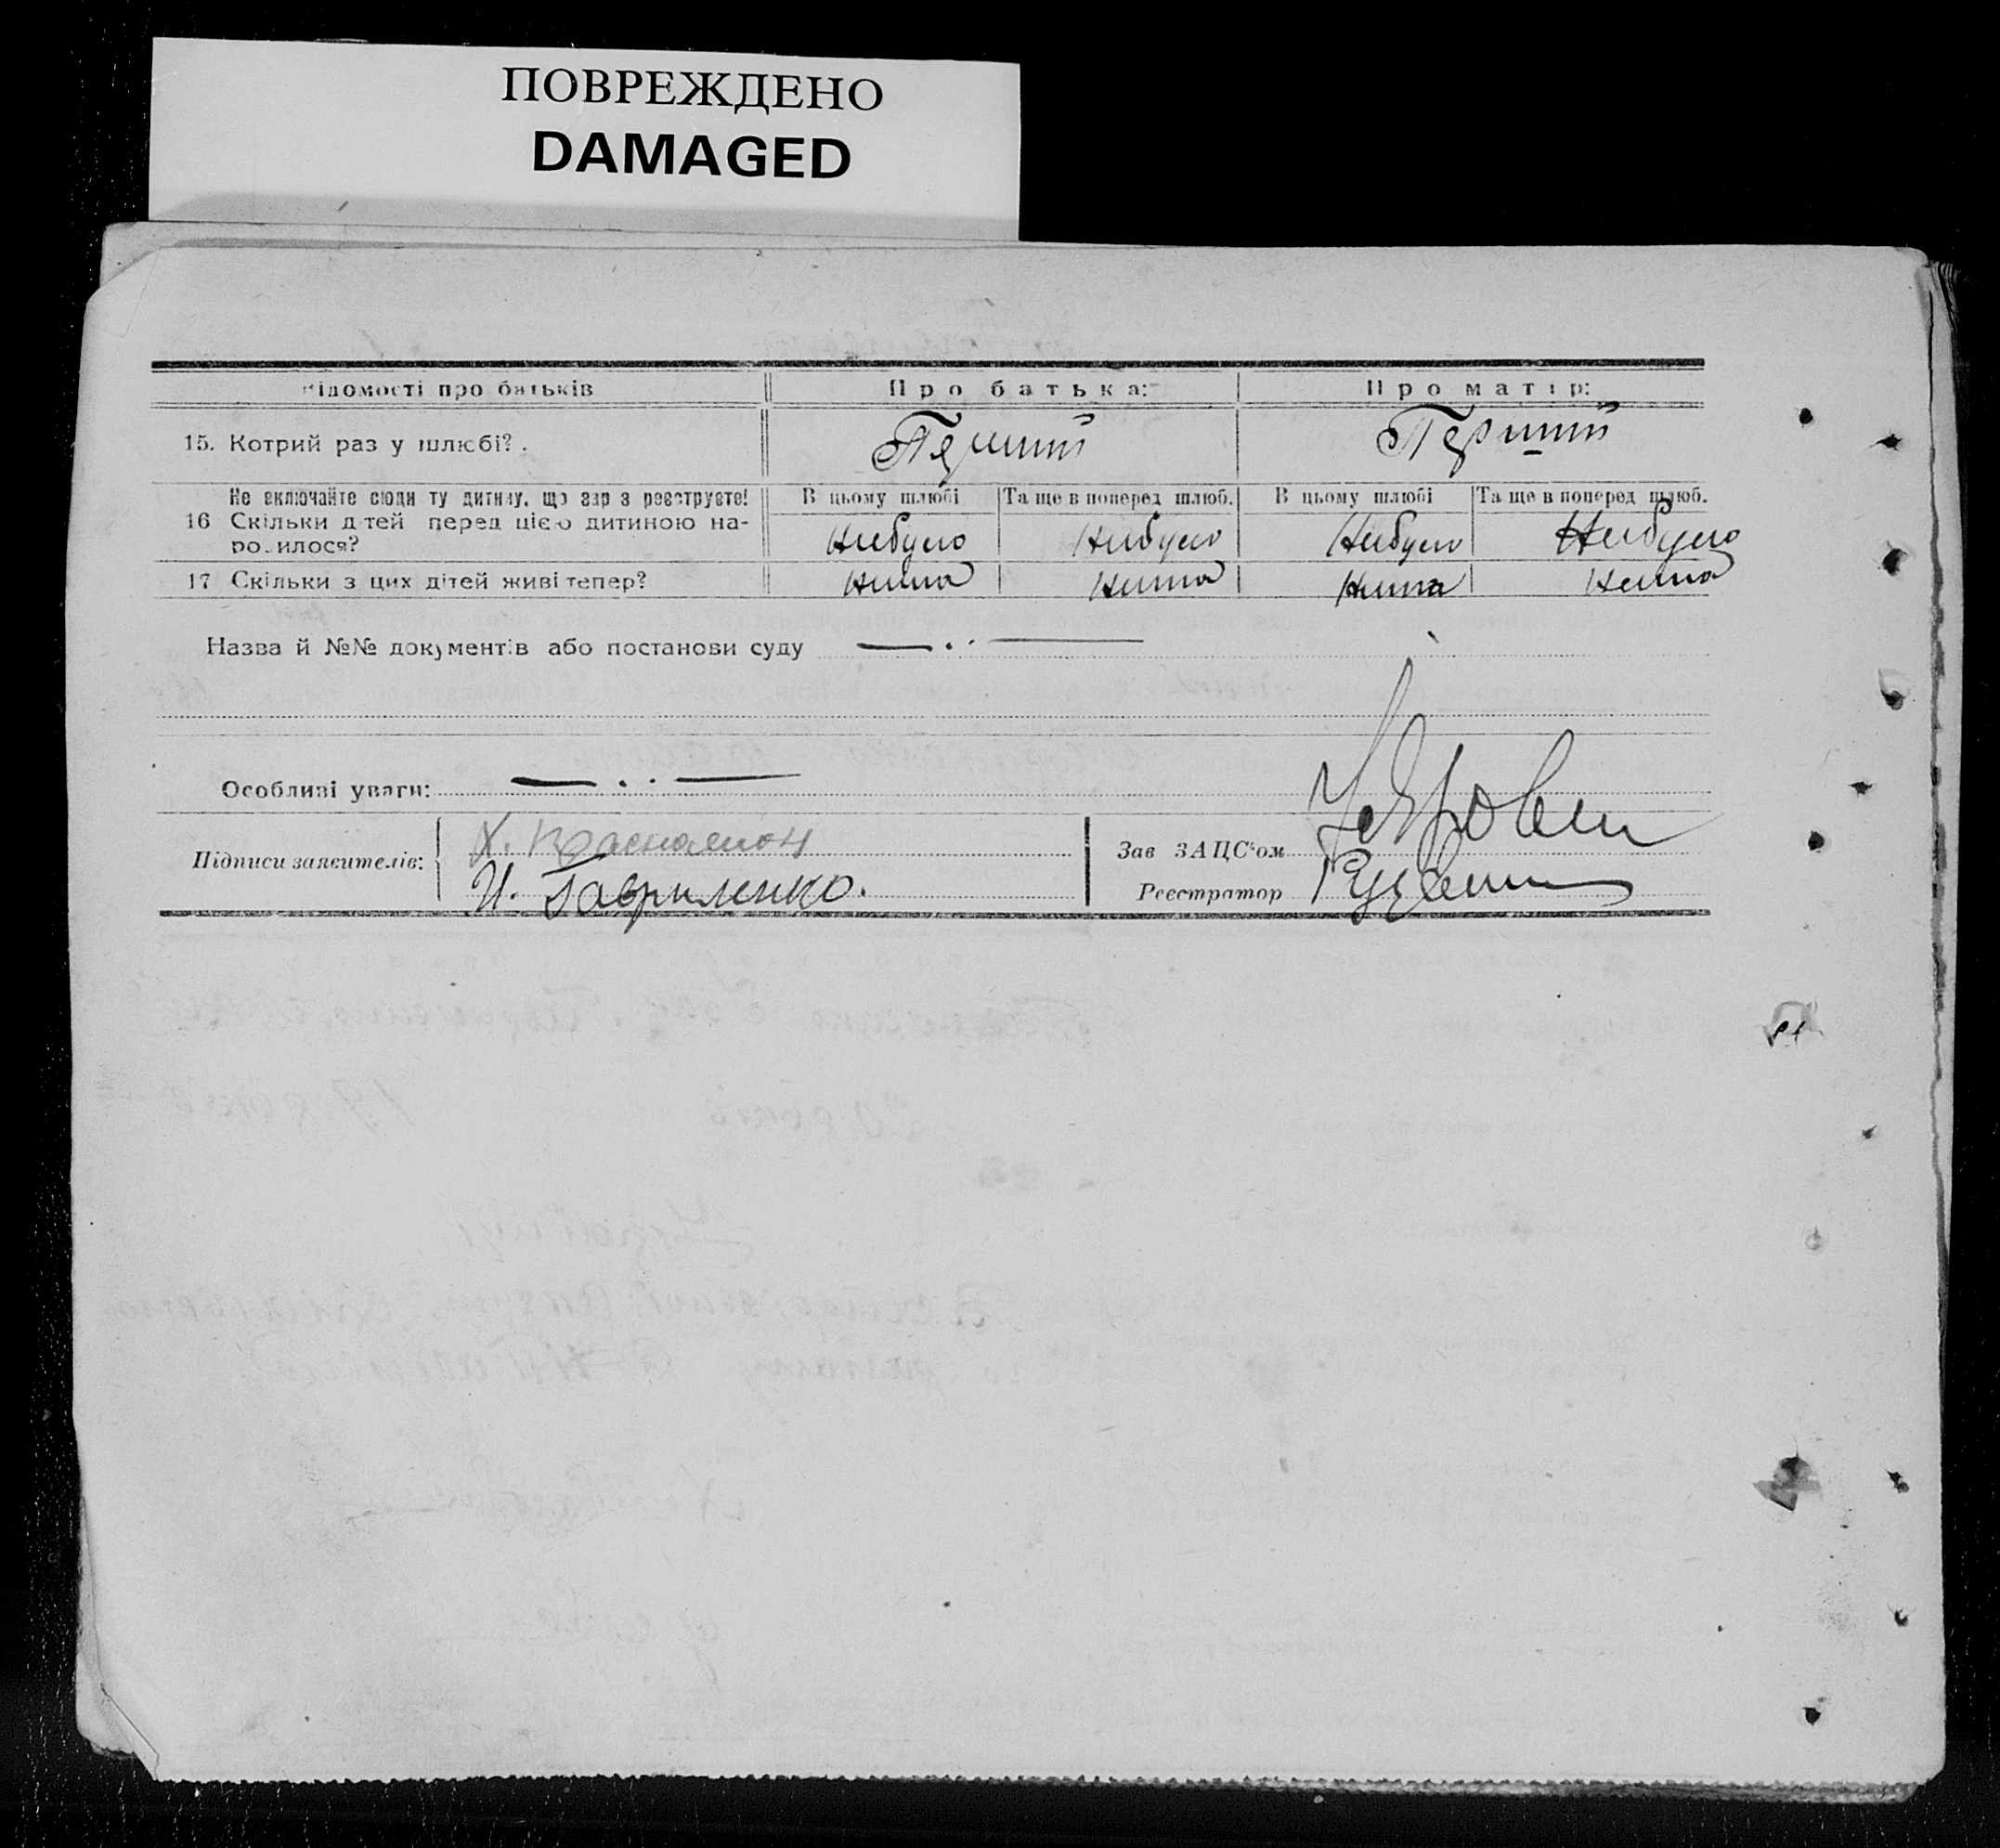 ПОВРЕЖДЕНО
DAMAGED
Відомості про батьків
Про батька:
Про матір:
15. Котрий раз у шлюбі?
Перший
Перший
Не включайте сюди ту дитину, що зараз реєструєте!
В цьому шлюбі
Та ще в поперед шлюб.
В цьому шлюбі
Та ще в поперед шлюб.
16 Скільки дітей перед цією дитиною на-
родилося?
Небуло
Небуло
Небуло
Небуло
17 Скільки з цих дітей живі тепер?
Нима
Нима
Нима
Нима
Назва й №№ документів або постанови суду
Особливі уваги:
Підписи заявителів:
Х.
И. Гавриленко.
Зав ЗАЦС'ом
Реєстратор